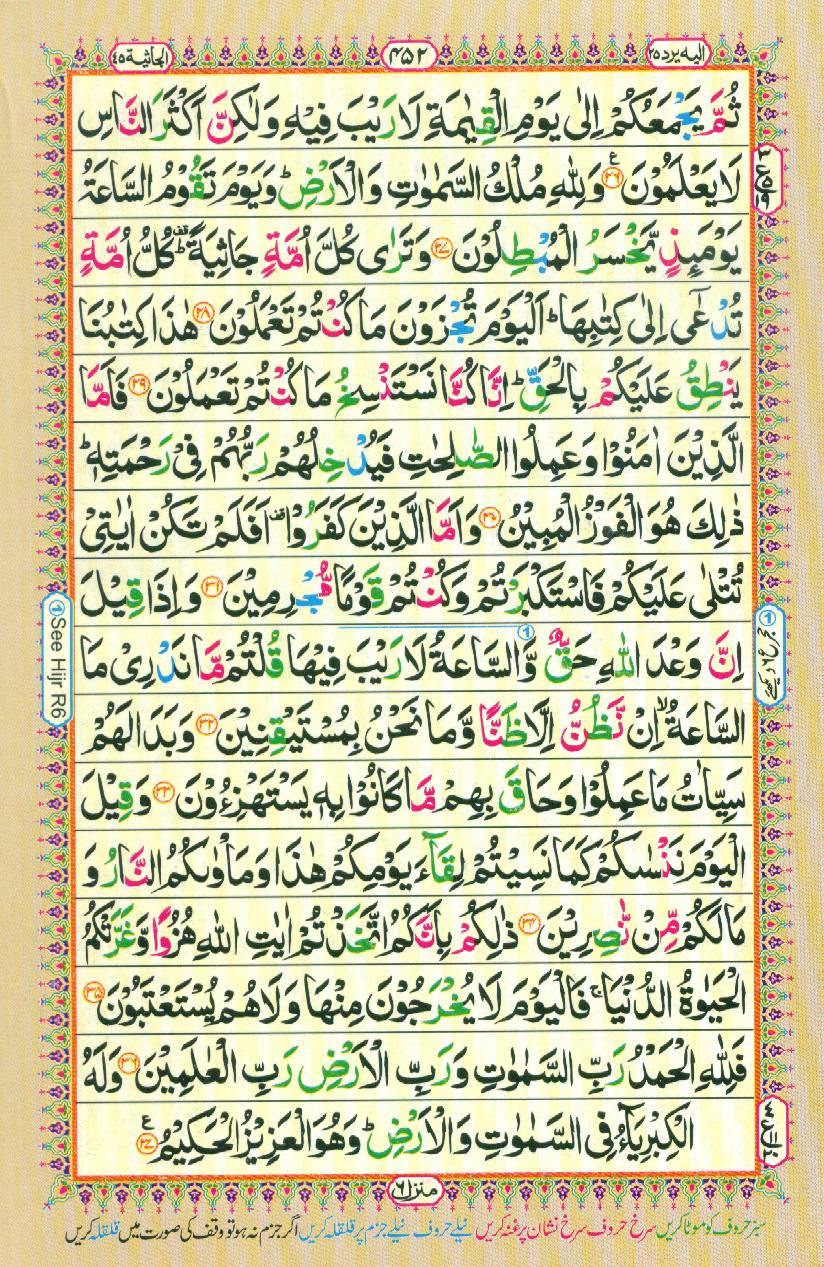 الیه یرد ۲۵
۴۵۲
الجاثیة ۴۵
ثُمَّ یَجْمَعُكُمْ اِلٰى یَوْمِ الْقِیٰمَةِ لَا رَیْبَ فِیْهِ وَلٰكِنَّ اَكْثَرَ النَّاسِ
لَا یَعْلَمُوْنَ ۟ع ﴿۲۶﴾ وَلِلّٰهِ مُلْكُ السَّمٰوٰتِ وَالْاَرْضِ ؕ وَیَوْمَ تَقُوْمُ السَّاعَةُ
یَوْمَىِٕذٍ یَّخْسَرُ الْمُبْطِلُوْنَ ﴿۲۷﴾ وَتَرٰى كُلَّ اُمَّةٍ جَاثِیَةً ۫ؕ كُلُّ اُمَّةٍ
تُدْعٰۤى اِلٰى كِتٰبِهَا ؕ اَلْیَوْمَ تُجْزَوْنَ مَا كُنْتُمْ تَعْمَلُوْنَ ﴿۲۸﴾ هٰذَا كِتٰبُنَا
یَنْطِقُ عَلَیْكُمْ بِالْحَقِّ ؕ اِنَّا كُنَّا نَسْتَنْسِخُ مَا كُنْتُمْ تَعْمَلُوْنَ ﴿۲۹﴾ فَاَمَّا
الَّذِیْنَ اٰمَنُوْا وَعَمِلُوا الصّٰلِحٰتِ فَیُدْخِلُهُمْ رَبُّهُمْ فِیْ رَحْمَتِهٖ ؕ
ذٰلِكَ هُوَ الْفَوْزُ الْمُبِیْنُ ﴿۳۰﴾ وَاَمَّا الَّذِیْنَ كَفَرُوْا ۫ اَفَلَمْ تَكُنْ اٰیٰتِیْ
تُتْلٰى عَلَیْكُمْ فَاسْتَكْبَرْتُمْ وَكُنْتُمْ قَوْمًا مُّجْرِمِیْنَ ﴿۳۱﴾ وَاِذَا قِیْلَ
اِنَّ وَعْدَ اللّٰهِ حَقٌّ وَّالسَّاعَةُ لَا رَیْبَ فِیْهَا قُلْتُمْ مَّا نَدْرِیْ مَا
السَّاعَةُ ۙ اِنْ نَّظُنُّ اِلَّا ظَنًّا وَّمَا نَحْنُ بِمُسْتَیْقِنِیْنَ ﴿۳۲﴾ وَبَدَا لَهُمْ
سَیِّاٰتُ مَا عَمِلُوْا وَحَاقَ بِهِمْ مَّا كَانُوْا بِهٖ یَسْتَهْزِءُوْنَ ﴿۳۳﴾ وَقِیْلَ
الْیَوْمَ نَنْسٰىكُمْ كَمَا نَسِیْتُمْ لِقَآءَ یَوْمِكُمْ هٰذَا وَمَاْوٰىكُمُ النَّارُ وَ
مَا لَكُمْ مِّنْ نّٰصِرِیْنَ ﴿۳۴﴾ ذٰلِكُمْ بِاَنَّكُمُ اتَّخَذْتُمْ اٰیٰتِ اللّٰهِ هُزُوًا وَّغَرَّتْكُمُ
الْحَیٰوةُ الدُّنْیَا ۚ فَالْیَوْمَ لَا یُخْرَجُوْنَ مِنْهَا وَلَا هُمْ یُسْتَعْتَبُوْنَ ﴿۳۵﴾
فَلِلّٰهِ الْحَمْدُ رَبِّ السَّمٰوٰتِ وَرَبِّ الْاَرْضِ رَبِّ الْعٰلَمِیْنَ ﴿۳۶﴾ وَلَهُ
الْكِبْرِیَآءُ فِی السَّمٰوٰتِ وَالْاَرْضِ ؕ وَهُوَ الْعَزِیْزُ الْحَكِیْمُ ۟ع ﴿۳۷﴾
① See Hijr R6
منزل ۶
سبز حروف کو موٹا کریں سرخ حروف سرخ نشان پر غنہ کریں نیلے حروف نیلے جزم پر قلقلہ کریں اگر جزم نہ ہو تو وقف کی صورت میں قلقلہ کریں